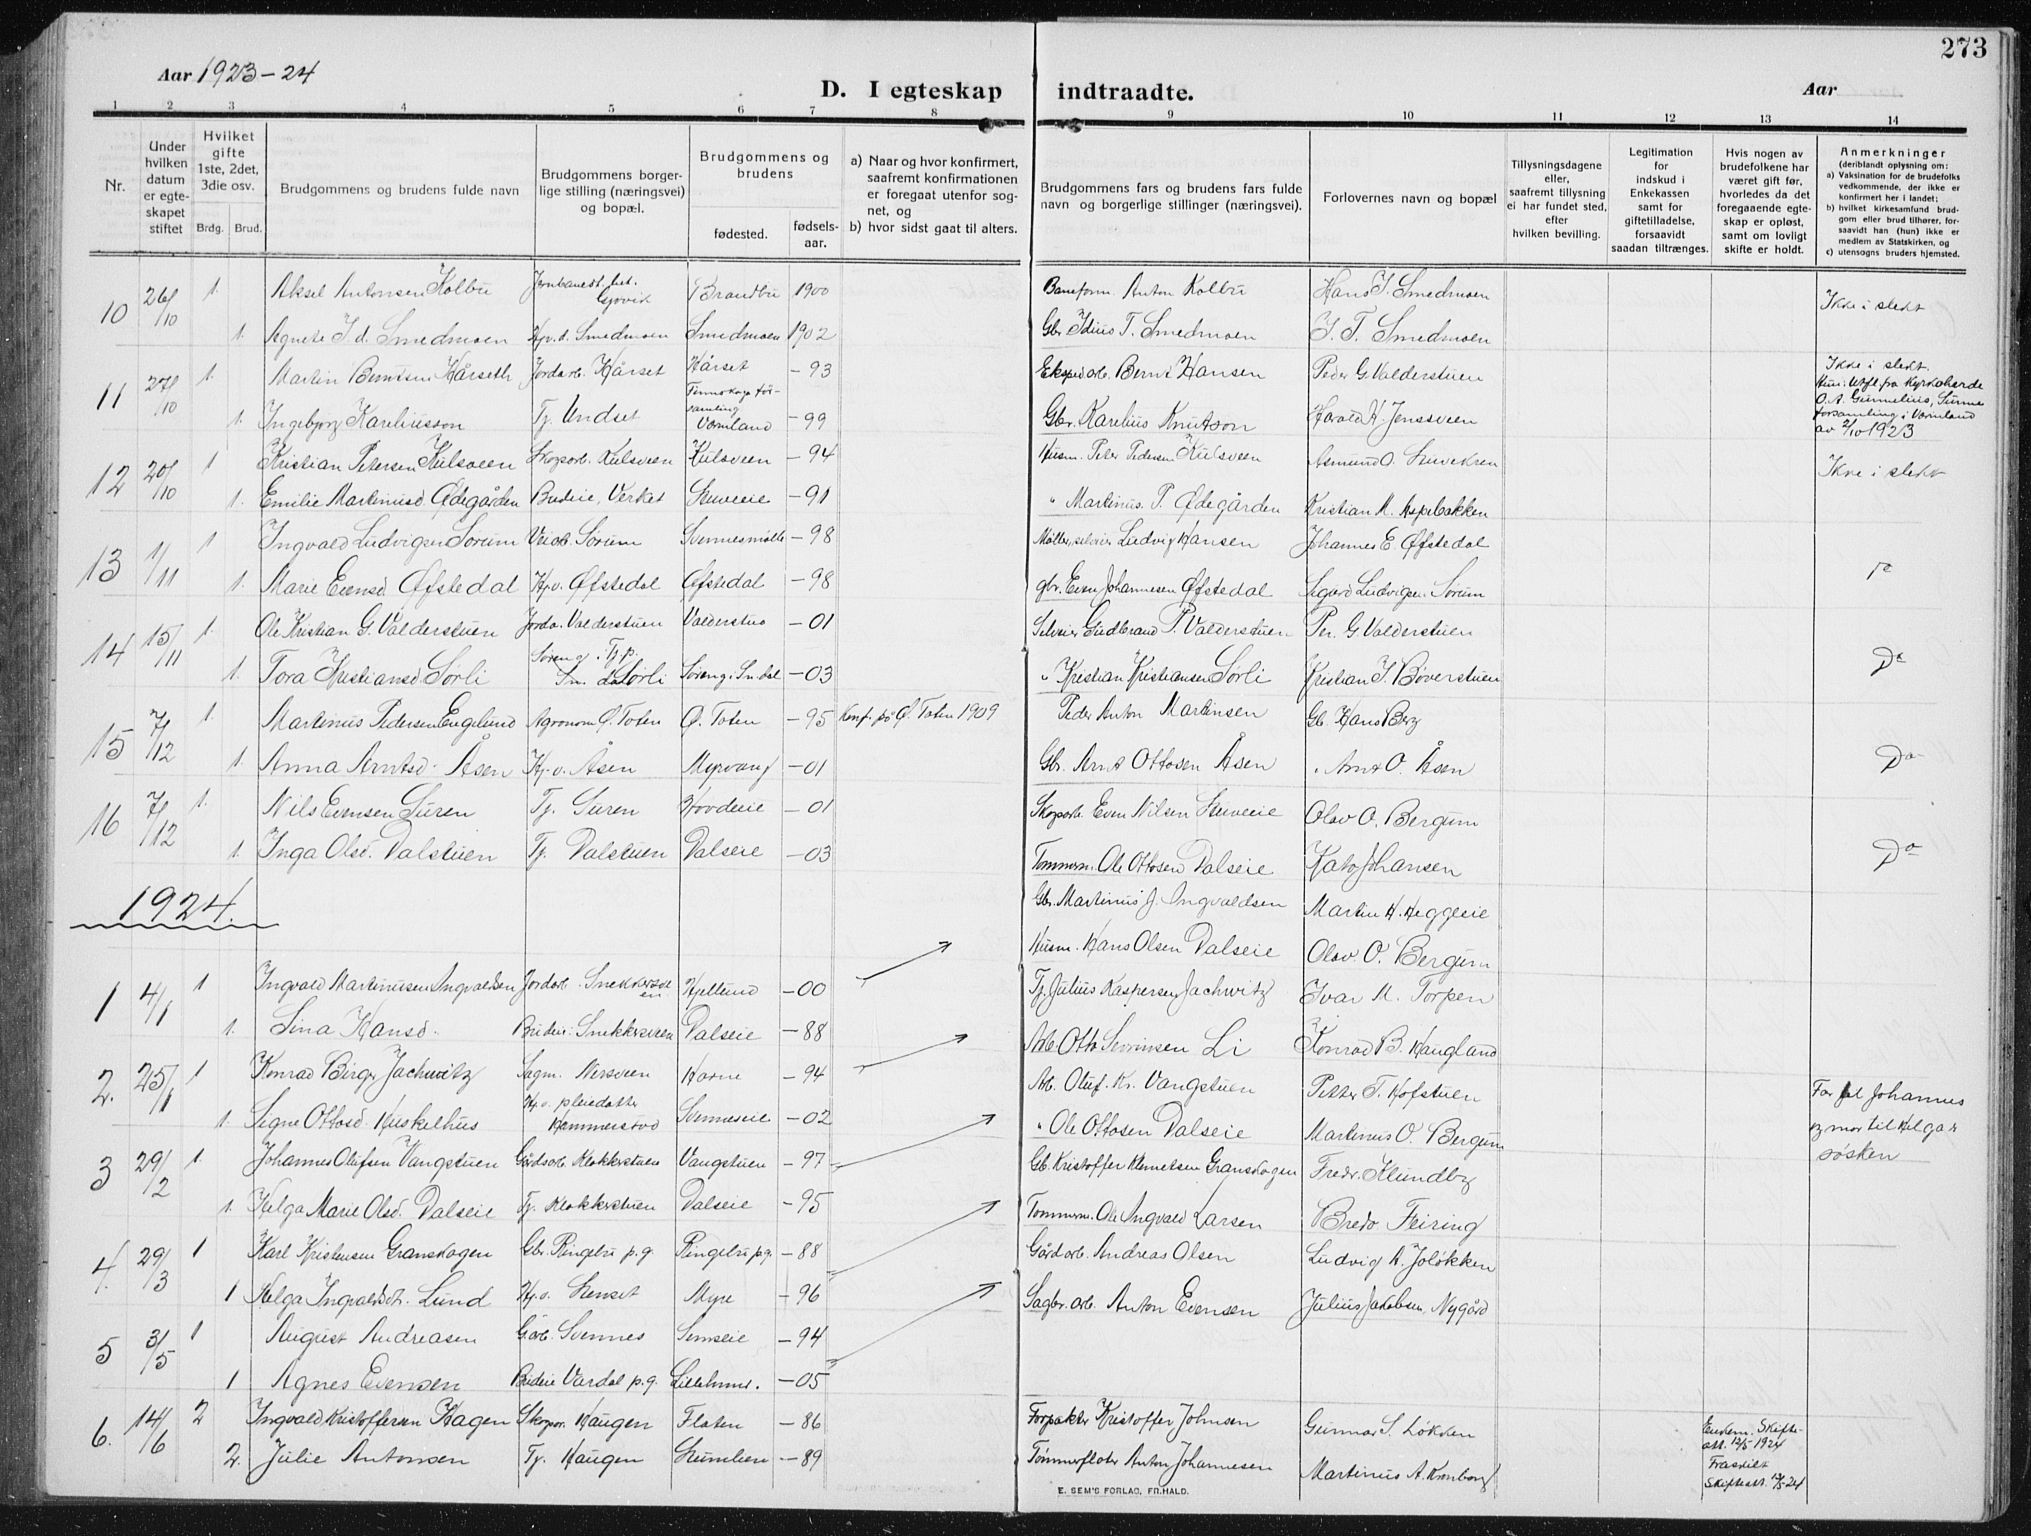 273
Aar 1923-24
D. I egteskap indtraadte.
Aar
1 2 3 4 5 6 7 8 9 10 11 12 13 14
Nr.
Under hvilken datum er egteskapet stiftet
Hvilket gifte 1ste, 2det, 3die osv.
Brdg. Brud.
Brudgommens og brudens fulde navn
Brudgommens borgerlige stilling (næringsvei) og bopæl.
Brudgommens og brudens
fødested.
fødselsaar.
a) Naar og hvor konfirmert, saafremt konfirmationen er foregaat utenfor sognet, og
b) hvor sidst gaat til alters.
Brudgommens fars og brudens fars fulde navn og borgerlige stillinger (næringsvei).
Forlovernes navn og bopæl
Tillysningsdagene eller, saafremt tillysning ei har fundet sted, efter hvilken bevilling.
Legitimation for indskud i Enkekassen samt for giftetilladelse, forsaavidt saadan tiltrænges.
Hvis nogen av brudefolkene har været gift før, hvorledes da det foregaaende egteskap er opløst, samt om lovligt skifte er holdt.
Anmerkninger (deriblandt oplysning om:
a) Vaksination for de brudefolks vedkommende, der ikke er konfirmert her i landet;
b) hvilket kirkesamfund brudgom eller brud tilhører, forsaavidt han (hun) ikke er medlem av Statskirken, og
c) utensogns bruders hjemsted.
10 26/10 1. Aksel Antonsen Kolbu Jernbanest. bet. Gjøvik Brandbu 1900 Baneform. Anton Kolbu Hans J. Smedmoen Ikke i slekt
1. Agnete I.d. Smedmoen Hjv. d. Smedmoen Smedmoen 1902 Gbr Idius T. Smedmoen I. T. Smedmoen
11 27/10 1. Martin Berntsen Hårseth Jordarb. Hårset Hårset -93 Eksped.arb. Bernt Hansen Peder G. Valderstuen Ikke i slekt.
1. Ingebjørg Kareliusson Tj. Undset Finnskoga forsamling Værmland -99 Gbr. Karelius Knutson Harald H. Jenssveen Hun: Utfl. fra Kyrkoherde O. A. Gunnelius, Sunne forsamling i Värmland av 2/10 1923
12 20/10 1 Kristian Petersen Kulsveen Skogsarb. Kulsveen Kulsveen -94 Husm. Peter Pedersen Kulsveen Asmund O. Ikke i slekt
1. Emilie Martinusd. Ødegården Budeie, Verket -91 " Martinus P. Ødegården Kristian M. Aspebakken
13 1/11 1 Ingvald Ludvigsen Sorum Veiarb. Sorum Svennesmølle -98 Møller, selveier Ludvig Hansen Johannes E. Øfstedal
1. Marie Evensd Øfstedal Hjv. Øfstedal Øfstedal -98 gbr. Even Johannesen Øfstedal Sigurd Ludvigsen Sorum Do
14 15/11 1. Ole Kristian G. Valderstuen Jorda. Valderstuen Valderstuo -01 Selveier Gudbrand P. Valderstuen Per G. Valderstuen
1. Tora Kristiansd Sørli Søreng i Sn. dal Sørli Søreng i Sn. dal -03 " Kristian Kristiansen Sørli Kristian J. Bøverstuen Do
15 7/12 1. Martinus Pedersen Engelund Agronom Ø. Toten Ø. Toten -95 Konf. på Ø. Toten 1909 Peder Anton Martinsen Gb. Hans Berg
1. Anna Arntsd. Åsen Hj. v. Åsen Myrvang -01 Gbr. Arnt Ottosen Åsen " Arnt O. Åsen Do
16 7/12 1. Nils Evensen Suren Tj. Suren Hovdeie -01 Skogsarb. Even Nilsen Olav O. Bergum
1. Inga Olsd. Dalstuen Tj. Dalstuen Dalseie -03 Tømmerm. Ole Ottosen Dalseie Kato Johansen Do
1924.
Gbr. Martinus J. Ingvaldsen Martin H. Heggeeie
Husm. Hans Olsen Dalseie Olav O. Bergum
1 4/1 1 Ingvald Martinusen Ingvaldsen Jordarb. Snekkersveen Hjellund -00 Tj. Julius Kaspersen Jachwitz Ivar M. Torpen
1. Lina Hansd. Budeie: Snekkersveen Dalseie -88 Arb. Otto Severinsen Li Konrad B. Haugland
2. 25/1 1 Konrad Birger Jachwitz Sagm. Nersveen Horne -94 Arb. Oluf. Kr. Vangstuen Petter T. Hofstuen
1. Signe Ottosd Huskelhus Hj.v. pleiedatter Hammerstad Svenneseie -02 " Ole Ottosen Dalseie Martinus O. Bergum Far til Johannes og mor til Helga er søsken
3 29/2 1 Johannes Olufsen Vangstuen Gårdsarb. Klokkerstuen Vangstuen -97 Gb. Kristoffer Klemetsen Granskogen Fredr. Klundby
1. Helga Marie Olsd. Dalseie Tj. Klokkerstuen Dalseie -95 Tømmerm. Ole Ingvald Larsen Bredo Feiring
4. 29/3 1 Karl Kristensen Granskogen Gbr. Ringebu p.g. Ringebu p.g. -88 Gårdarb. Andreas Olsen Ludvig A. Joløkken
1 Helga Ingvaldsdt. Lund Hj.v. Myre -96 Sagbr. arb. Anton Evensen Julius Jakobsen, Nygård
5 31/5 1 August Andreasen Svennes -94
1 Agnes Evensen Budeie Vardal p.g. Lillehmr. -05
6. 14/6 2 Ingvald Kristoffersen Hagen Skogsar. Haugen Floten -86 Forpakter Kristoffer Johnsen Gunnar S. Løkken Enkem. Skifteatt. 12/5 1924
2. Julie Antonsen Tj. Haugen -89 Tømmerfløter Anton Johannesen Martinus A. Kronborg Fraskilt Skifteatt. 12/5-24
E. SEM'S FORLAG, FR.HALD.